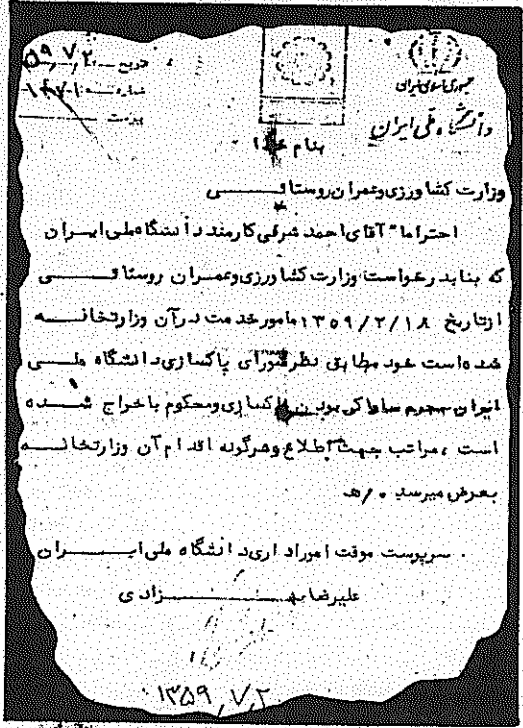 جمهوری اسلامی ایران
دانشگاه ملی ایران
تاریخ ۵۹,۷,۲
شماره
پیوست
بنام خدا
وزارت کشاورزی وعمران روستائـــــی
احتراما" آقای احمد شرفی کارمند دانشگاه ملی ایـــران
که بنابدرخواست وزارت کشاورزی وعمـــران روستائـــــی
ازتاریخ ۱۳۵۹/۲/۱۸ مامورخدمت درآن وزارتخانــــه
شده است خود مطابق نظرشورای پاکسازی دانشگاه ملـــی
ایران بجرم ساواکی بودن پاکسازی ومحکوم باخراج شـــده
است ،مراتب جهت اطلاع وهرگونه اقدام آن وزارتخانـــه
بعرض میرسد ./هـ
سرپرست موقت اموراداری دانشگاه ملی ایــــران
علیرضا بهــــــزادی
۱۳۵۹,۷,۲